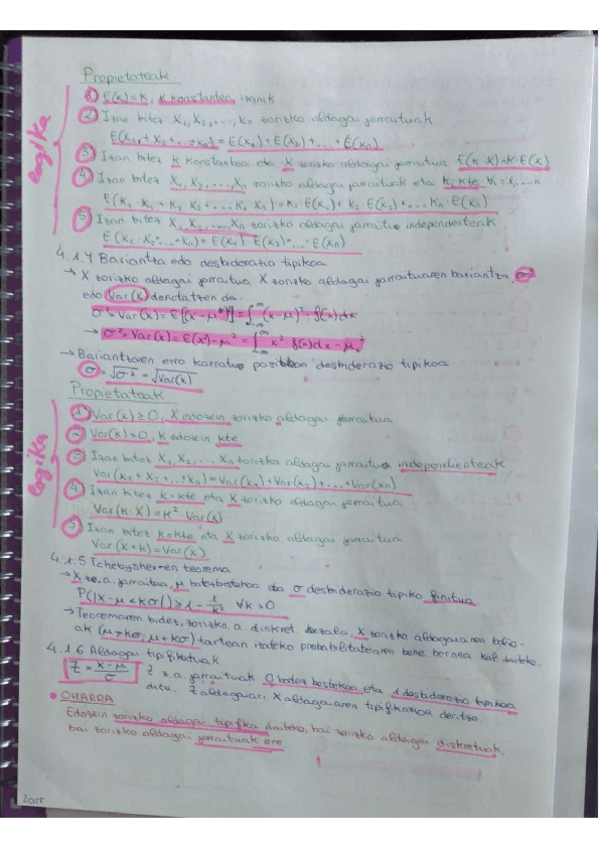 Propietateak
logika
① E(K)=K, K konstantea izanik
② Izan bitez X₁, X₂, ..., Xn zorizko aldagai jarraituak
E(X₁ + X₂ + ... + Xn) = E(X₁) + E(X₂) + ... + E(Xn)
③ Izan bitez K konstantea eta X zorizko aldagai jarraitua E(K·X)=K·E(X)
④ Izan bitez X₁, X₂, ..., Xn zorizko aldagai jarraituak eta Ki kte ∀i=1,...,n
E(K₁·X₁ + K₂·X₂ + ... Kn·Xn)=K₁·E(X₁)+ K₂·E(X₂)+... Kn·E(Xn)
⑤ Izan bitez X₁, X₂, ..., Xn zorizko aldagai jarraitu independenteak
E(X₁·X₂·...·Xn)= E(X₁)·E(X₂)·...·E(Xn)
4.1.4 Bariantza edo desbiderazio tipikoa
→ X zorizko aldagai jarraitua X zorizko aldagai jarraituaren bariantza, σ²
edo Var(X) denotatzen da.
σ²=Var(X)=E[(X-μ)²]=∫_{-∞}^{∞}(x-μ)²·f(x)dx
→ σ²=Var(X)=E(X²)-μ²=∫_{-∞}^{∞} x²·f(x)dx-μx²
→ Bariantzaren erro karratu positiboa desbiderazio tipikoa
σ=√σ²=√Var(X)
Propietateak
logika
① Var(X)≥0, X edozein zorizko aldagai jarraitua
② Var(K)=0, K edozein kte
③ Izan bitez X₁, X₂, ... Xn zorizko aldagai jarraitu independienteak
Var(X₁+X₂+...+Xn)=Var(X₁)+Var(X₂)+...+Var(Xn)
④ Izan bitez K=kte eta X zorizko aldagai jarraitua
Var(K·X)=K²·Var(X)
⑤ Izan bitez K=kte eta X zorizko aldagai jarraitua
Var(X+K)=Var(X)
4.1.5 Tchebyshev-en teorema
→ X z.a. jarraitua, μ batezbestekoa eta σ desbiderazio tipiko finitua
P(|X-μ|<Kσ)≥1-1/K² ∀K>0
→ Teoremaren bidez, zorizko a. diskret. bezala, X zorizko aldagaiaren balio-
ak (μ-Kσ, μ+Kσ) tartean izateko probabilitatearen behe bornea kal. daiteke.
4.1.6 Aldagai tipifikatuak
Z=X-μ/σ Z z.a. jarraituak 0 batez bestekoa eta 1 desbiderazio tipikoa
ditu. Z aldagaiari X aldagaiaren tipifikazioa deritzo.
• OHARRA
Edozein zorizko aldagai tipifika daiteke, bai zorizko aldagai diskretuak,
bai zorizko aldagai jarraituak ere